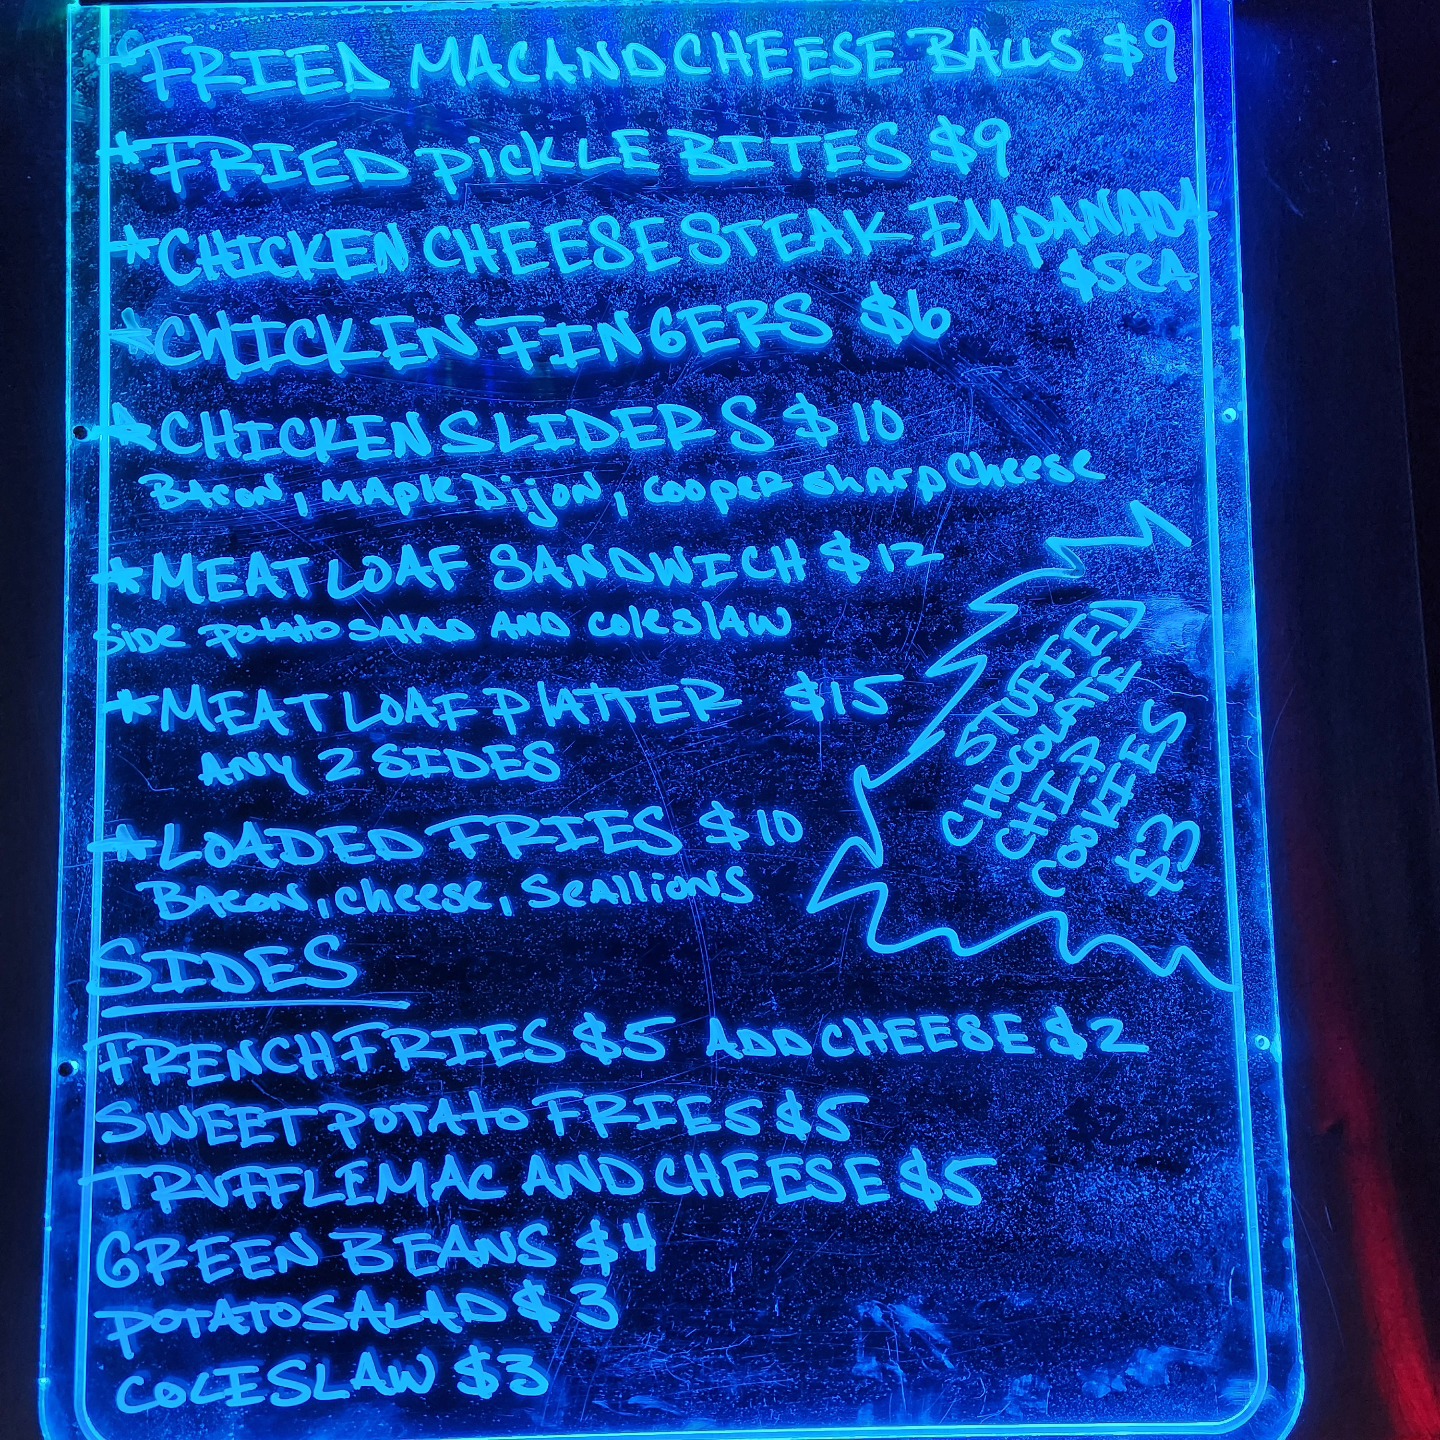 *FRIED MAC AND CHEESE BALLS $9
*FRIED PiCKLE BITES $9
*CHICKEN CHEESESTEAK EMPANADA
$5EA
*CHICKEN FINGERS $6
*CHICKEN SLIDERS $10
BACON, MAPle Dijon, COOPER SHARP Cheese
*MEATLOAF SANDWICH $12
SiDE POTATO SALAD AND COleslAW
*MEATLOAF PlATTER $15
ANY 2 SIDES
STUFFED
CHOCOLATE
CHIP
COOKIES
$3
*LOADED FRIES $10
BACON, cheese, ScAllioNS
SIDES
FRENCH FRIES $5 ADD CHEESE $2
SWEET POTATO FRIES $5
TRUFFLE MAC AND CHEESE $5
GREEN BEANS $4
POTATO SALAD $3
COLESLAW $3